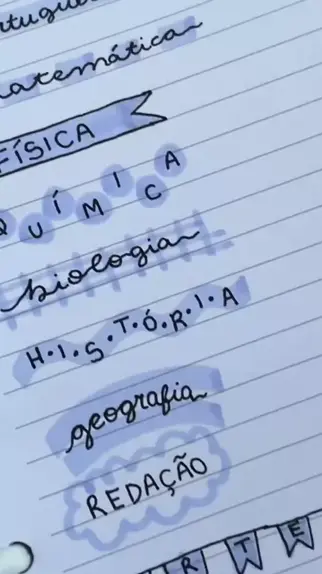 rtuguê
atemática
FÍSICA
QUÍMICA
biologia
H.I.S.T.Ó.R.I.A
geografia
REDAÇÃO
RTE